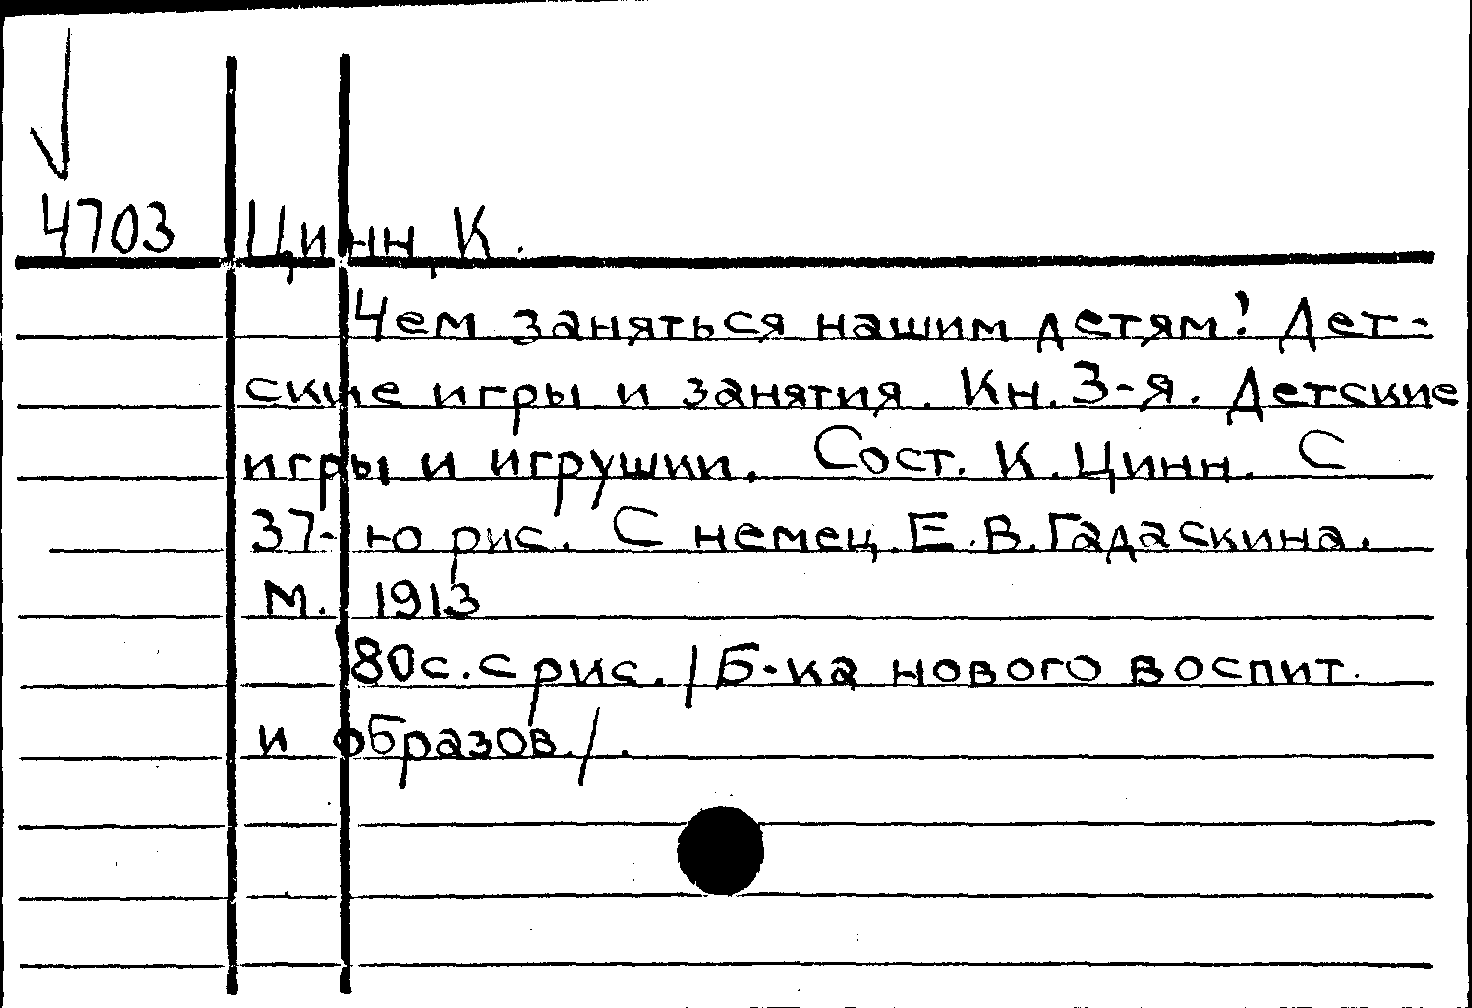 4703 Цинн, К.
Чем заняться нашим детям? Дет-
ские игры и занятия. Кн. 3-я. Детские
игры и игрушки. Сост. К. Цинн. С
37-ю рис. С немец. Е. В. Гадаскина.
М. 1913
80с. с рис. /Б-ка нового воспит.
и образов./.